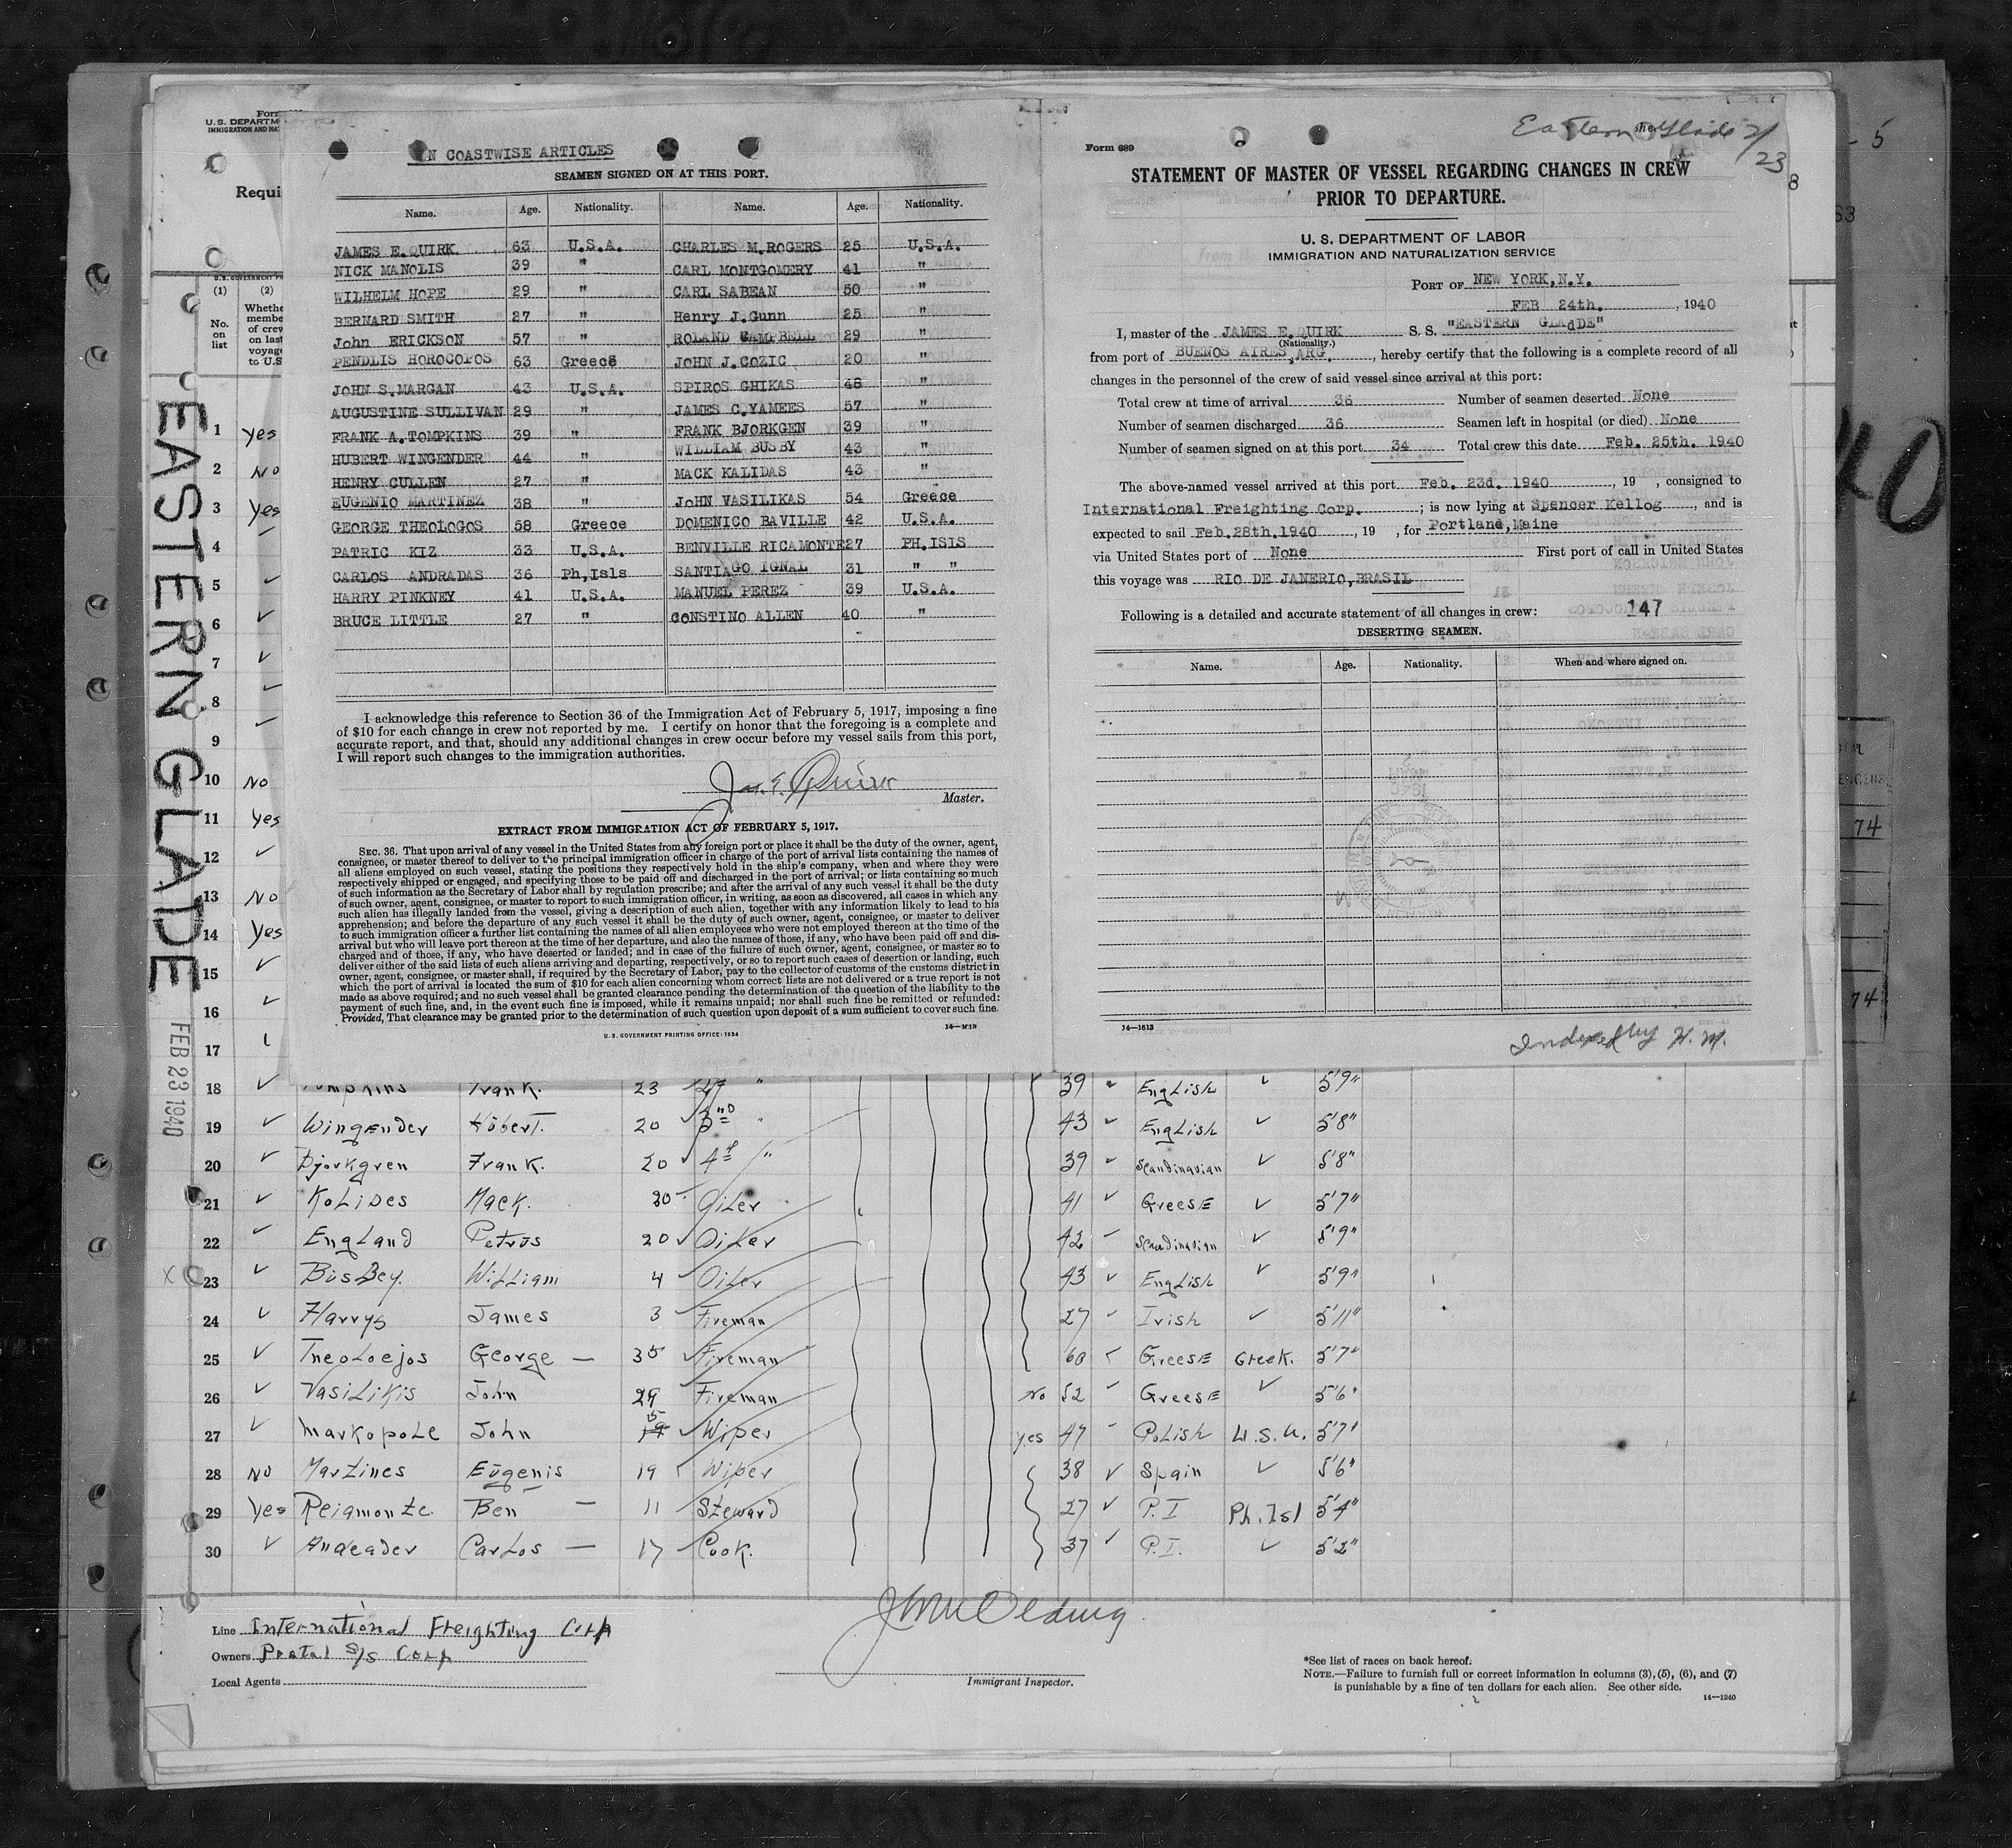 ON COASTWISE ARTICLES
SEAMEN SIGNED ON AT THIS PORT.
Name. Age. Nationality. Name. Age. Nationality.
JAMES E.QUIRK 63 U.S.A. CHARLES M.ROGERS 25 U.S.A.
NICK MANOLIS 39 " CARL MONTGOMERY 41 "
WILHELM HOPE 29 " CARL SABEAN 50 "
BERNARD SMITH 27 " Henry J.Gunn 25 "
John ERICKSON 57 " ROLAND CAMPBELL 29 "
PENDLIS HOROCOPOS 63 Greece JOHN J.COZIC 20 "
JOHN S.MARGAN 43 U.S.A. SPIROS GHIKAS 48 "
AUGUSTINE SULLIVAN 29 " JAMES C.YAMEES 57 "
FRANK A.TOMPKINS 39 " FRANK BJORKGEN 39 "
HUBERT WINGENDER 44 " WILLIAM BUSBY 43 "
HENRY CULLEN 27 " MACK KALIDAS 43 "
EUGENIO MARTINEZ 38 " JOHN VASILIKAS 54 Greece
GEORGE THEOLOGOS 58 Greece DOMENICO BAVILLE 42 U.S.A.
PATRIC KIZ 33 U.S.A. BENVILLE RICAMONTE 27 PH.ISLS
CARLOS ANDRADAS 36 Ph,Isls SANTIAGO IGNAL 31 " "
HARRY PINKNEY 41 U.S.A. MANUEL PEREZ 39 U.S.A.
BRUCE LITTLE 27 " CONSTINO ALLEN 40 "
I acknowledge this reference to Section 36 of the Immigration Act of February 5, 1917, imposing a fine
of $10 for each change in crew not reported by me. I certify on honor that the foregoing is a complete and
accurate report, and that, should any additional changes in crew occur before my vessel sails from this port,
I will report such changes to the immigration authorities.
Jas. E. Quirk
Master.
EXTRACT FROM IMMIGRATION ACT OF FEBRUARY 5, 1917.
SEC. 36. That upon arrival of any vessel in the United States from any foreign port or place it shall be the duty of the owner, agent,
consignee, or master thereof to deliver to the principal immigration officer in charge of the port of arrival lists containing the names of
all aliens employed on such vessel, stating the positions they respectively hold in the ship's company, when and where they were
respectively shipped or engaged, and specifying those to be paid off and discharged in the port of arrival; or lists containing so much
of such information as the Secretary of Labor shall by regulation prescribe; and after the arrival of any such vessel it shall be the duty
of such owner, agent, consignee, or master to report to such immigration officer, in writing, as soon as discovered, all cases in which any
such alien has illegally landed from the vessel, giving a description of such alien, together with any information likely to lead to his
apprehension; and before the departure of any such vessel it shall be the duty of such owner, agent, consignee, or master to deliver
to such immigration officer a further list containing the names of all alien employees who were not employed thereon at the time of the
arrival but who will leave port thereon at the time of her departure, and also the names of those, if any, who have been paid off and dis-
charged and of those, if any, who have deserted or landed; and in case of the failure of such owner, agent, consignee, or master so to
deliver either of the said lists of such aliens arriving and departing, respectively, or so to report such cases of desertion or landing, such
owner, agent, consignee, or master shall, if required by the Secretary of Labor, pay to the collector of customs of the customs district in
which the port of arrival is located the sum of $10 for each alien concerning whom correct lists are not delivered or a true report is not
made as above required; and no such vessel shall be granted clearance pending the determination of the question of the liability to the
payment of such fine, and, in the event such fine is imposed, while it remains unpaid; nor shall such fine be remitted or refunded:
Provided, That clearance may be granted prior to the determination of such question upon deposit of a sum sufficient to cover such fine.
U.S. GOVERNMENT PRINTING OFFICE: 1934
Eastern Glade 2/23
Form 689
STATEMENT OF MASTER OF VESSEL REGARDING CHANGES IN CREW
PRIOR TO DEPARTURE.
U. S. DEPARTMENT OF LABOR
IMMIGRATION AND NATURALIZATION SERVICE
PORT OF NEW YORK,N.Y.
FEB 24th. , 1940
I, master of the JAMES E.QUIRK S. S. "EASTERN GLAdDE"
(Nationality.)
from port of BUENOS AIRES,ARG. , hereby certify that the following is a complete record of all
changes in the personnel of the crew of said vessel since arrival at this port:
Total crew at time of arrival 36 Number of seamen deserted None
Number of seamen discharged 36 Seamen left in hospital (or died) None
Number of seamen signed on at this port 34 Total crew this date Feb. 25th. 1940
The above-named vessel arrived at this port Feb. 23d. 1940 , 19 , consigned to
International Freighting Corp. ; is now lying at Spencer Kellog , and is
expected to sail Feb.28th.1940 , 19 , for Portland,Maine
via United States port of None First port of call in United States
this voyage was RIO DE JANERIO,BRASIL
Following is a detailed and accurate statement of all changes in crew: 147
DESERTING SEAMEN.
Name. Age. Nationality. When and where signed on.
14—1613
Indexed by H. M.
U. S. DEPARTM
IMMIGRATION AND NA
Requi
(1) (2)
No. on list
Whethe
membe
of crew
on last
voyage
to U.S
EASTERN GLADE
FEB 23 1940
1 Yes
2 No
3 Yes
4
5 ✓
6 ✓
7 ✓
8
9
10 No
11 Yes
12 ✓
13 No
14 Yes
15 ✓
16 ✓
17
18 ✓ Tompkins Frank. 23 39 English ✓ 5'9"
19 ✓ Wingender Hubert. 20 3rd " 43 English ✓ 5'8"
20 ✓ Bjorkgren Frank. 20 4th " 39 Scandinavian ✓ 5'8"
21 ✓ Kolides Mack. 20 Oiler 41 ✓ Greese ✓ 5'7"
22 ✓ England Petrus 20 Oiler 42 Scandinavian ✓ 5'9"
23 ✓ Busbey. William 4 Oiler 43 ✓ English ✓ 5'9"
24 ✓ Harrys James 3 Fireman 27 Irish ✓ 5'11"
25 ✓ Theoloejos George — 35 Fireman 60 Greese Greek. 5'7"
26 ✓ Vasilikis John 29 Fireman No 52 Greese ✓ 5'6"
27 ✓ Markopole John Wiper yes 47 Polish U.S.A. 5'7"
28 No Martines Eugenis 19 Wiper 38 ✓ Spain ✓ 5'6"
29 Yes Reigmonte Ben — 11 Steward 27 ✓ P.I Ph.Isl 5'4"
30 ✓ Andeader Carlos — 17 Cook. 37 ✓ P.I. ✓ 5'2"
Line International Freighting Corp
Owners Postal S/S Corp
Local Agents
Immigrant Inspector.
*See list of races on back hereof.
NOTE.—Failure to furnish full or correct information in columns (3), (5), (6), and (7)
is punishable by a fine of ten dollars for each alien. See other side.
14—1240
74
74